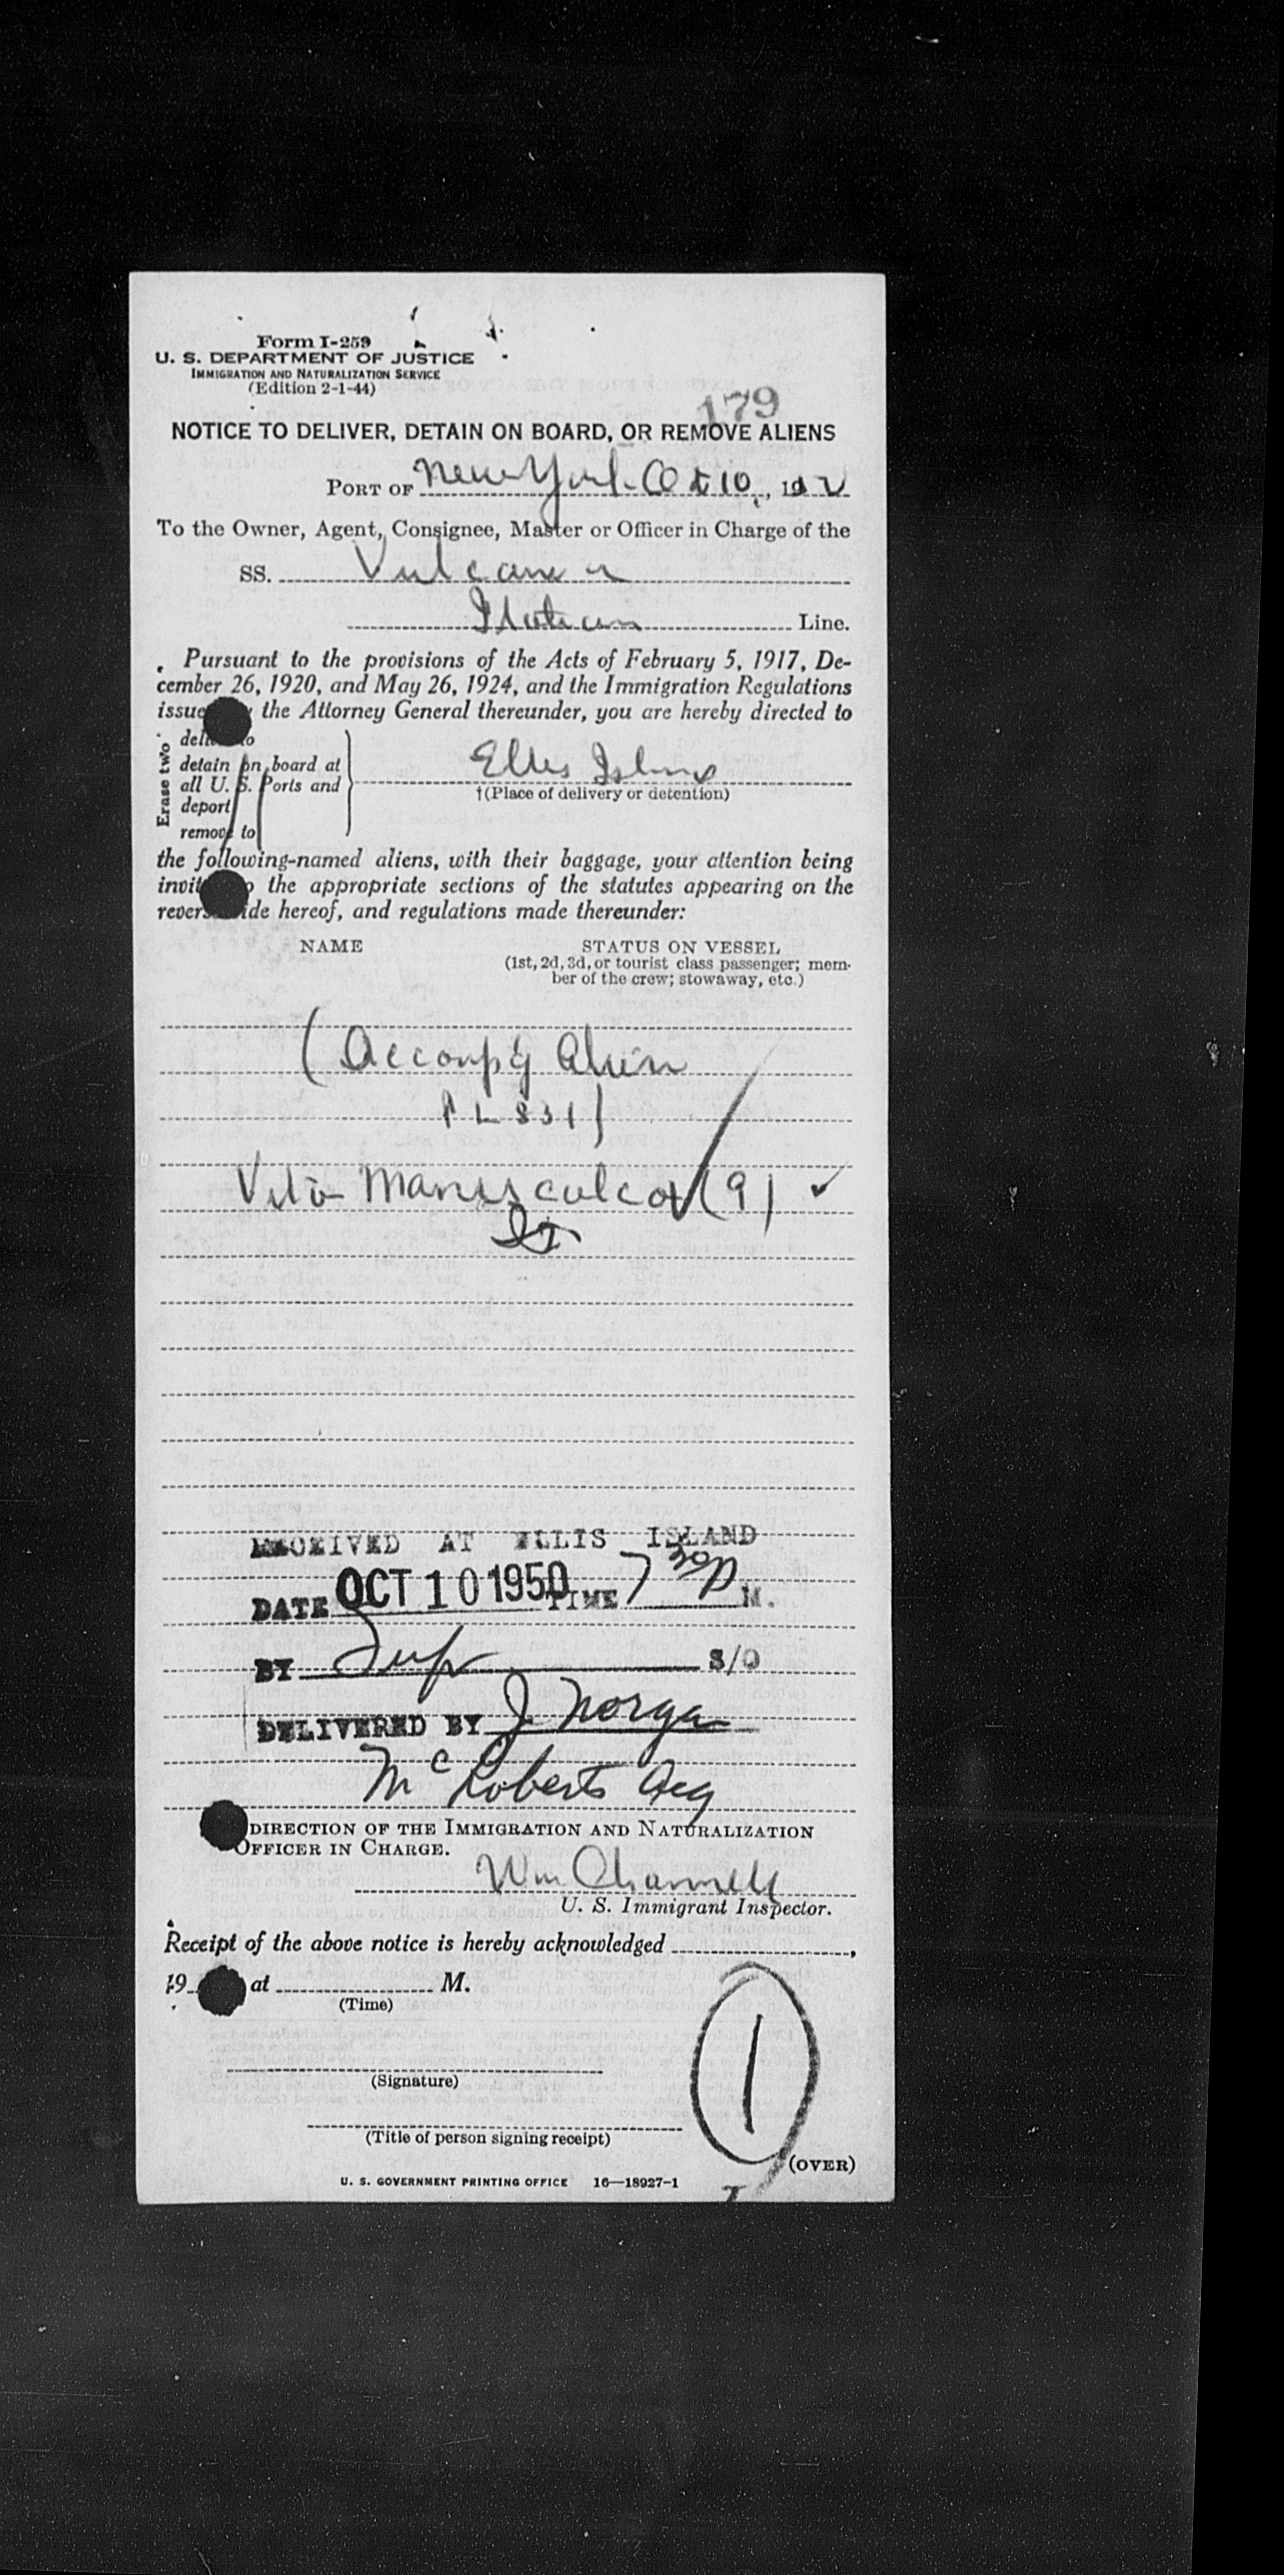 Form I-259
U. S. DEPARTMENT OF JUSTICE
IMMIGRATION AND NATURALIZATION SERVICE
(Edition 2-1-44)
179
NOTICE TO DELIVER, DETAIN ON BOARD, OR REMOVE ALIENS
PORT OF New York Oct 10, 19
To the Owner, Agent, Consignee, Master or Officer in Charge of the
SS. Vulcania
Italian Line.
Pursuant to the provisions of the Acts of February 5, 1917, De-
cember 26, 1920, and May 26, 1924, and the Immigration Regulations
issue the Attorney General thereunder, you are hereby directed to
Erase two
deli to
detain on board at
all U. S. Ports and
deport
remove to
Ellis Island
†(Place of delivery or detention)
the following-named aliens, with their baggage, your attention being
invit o the appropriate sections of the statutes appearing on the
revers ide hereof, and regulations made thereunder:
NAME
STATUS ON VESSEL
(1st, 2d, 3d, or tourist class passenger; mem-
ber of the crew; stowaway, etc.)
(Accomp'g Alien
PL 831)
Vito Maniscalco (9)
RECEIVED AT ELLIS ISLAND
DATE OCT 10 1950 TIME 7 30 P M.
BY S/O
DELIVERED BY J. Norga
McRoberts Agy
DIRECTION OF THE IMMIGRATION AND NATURALIZATION
OFFICER IN CHARGE.
Wm Channell
U. S. Immigrant Inspector.
Receipt of the above notice is hereby acknowledged ,
19 at M.
(Time)
(Signature)
(Title of person signing receipt)
1
(OVER)
U. S. GOVERNMENT PRINTING OFFICE 16—18927-1